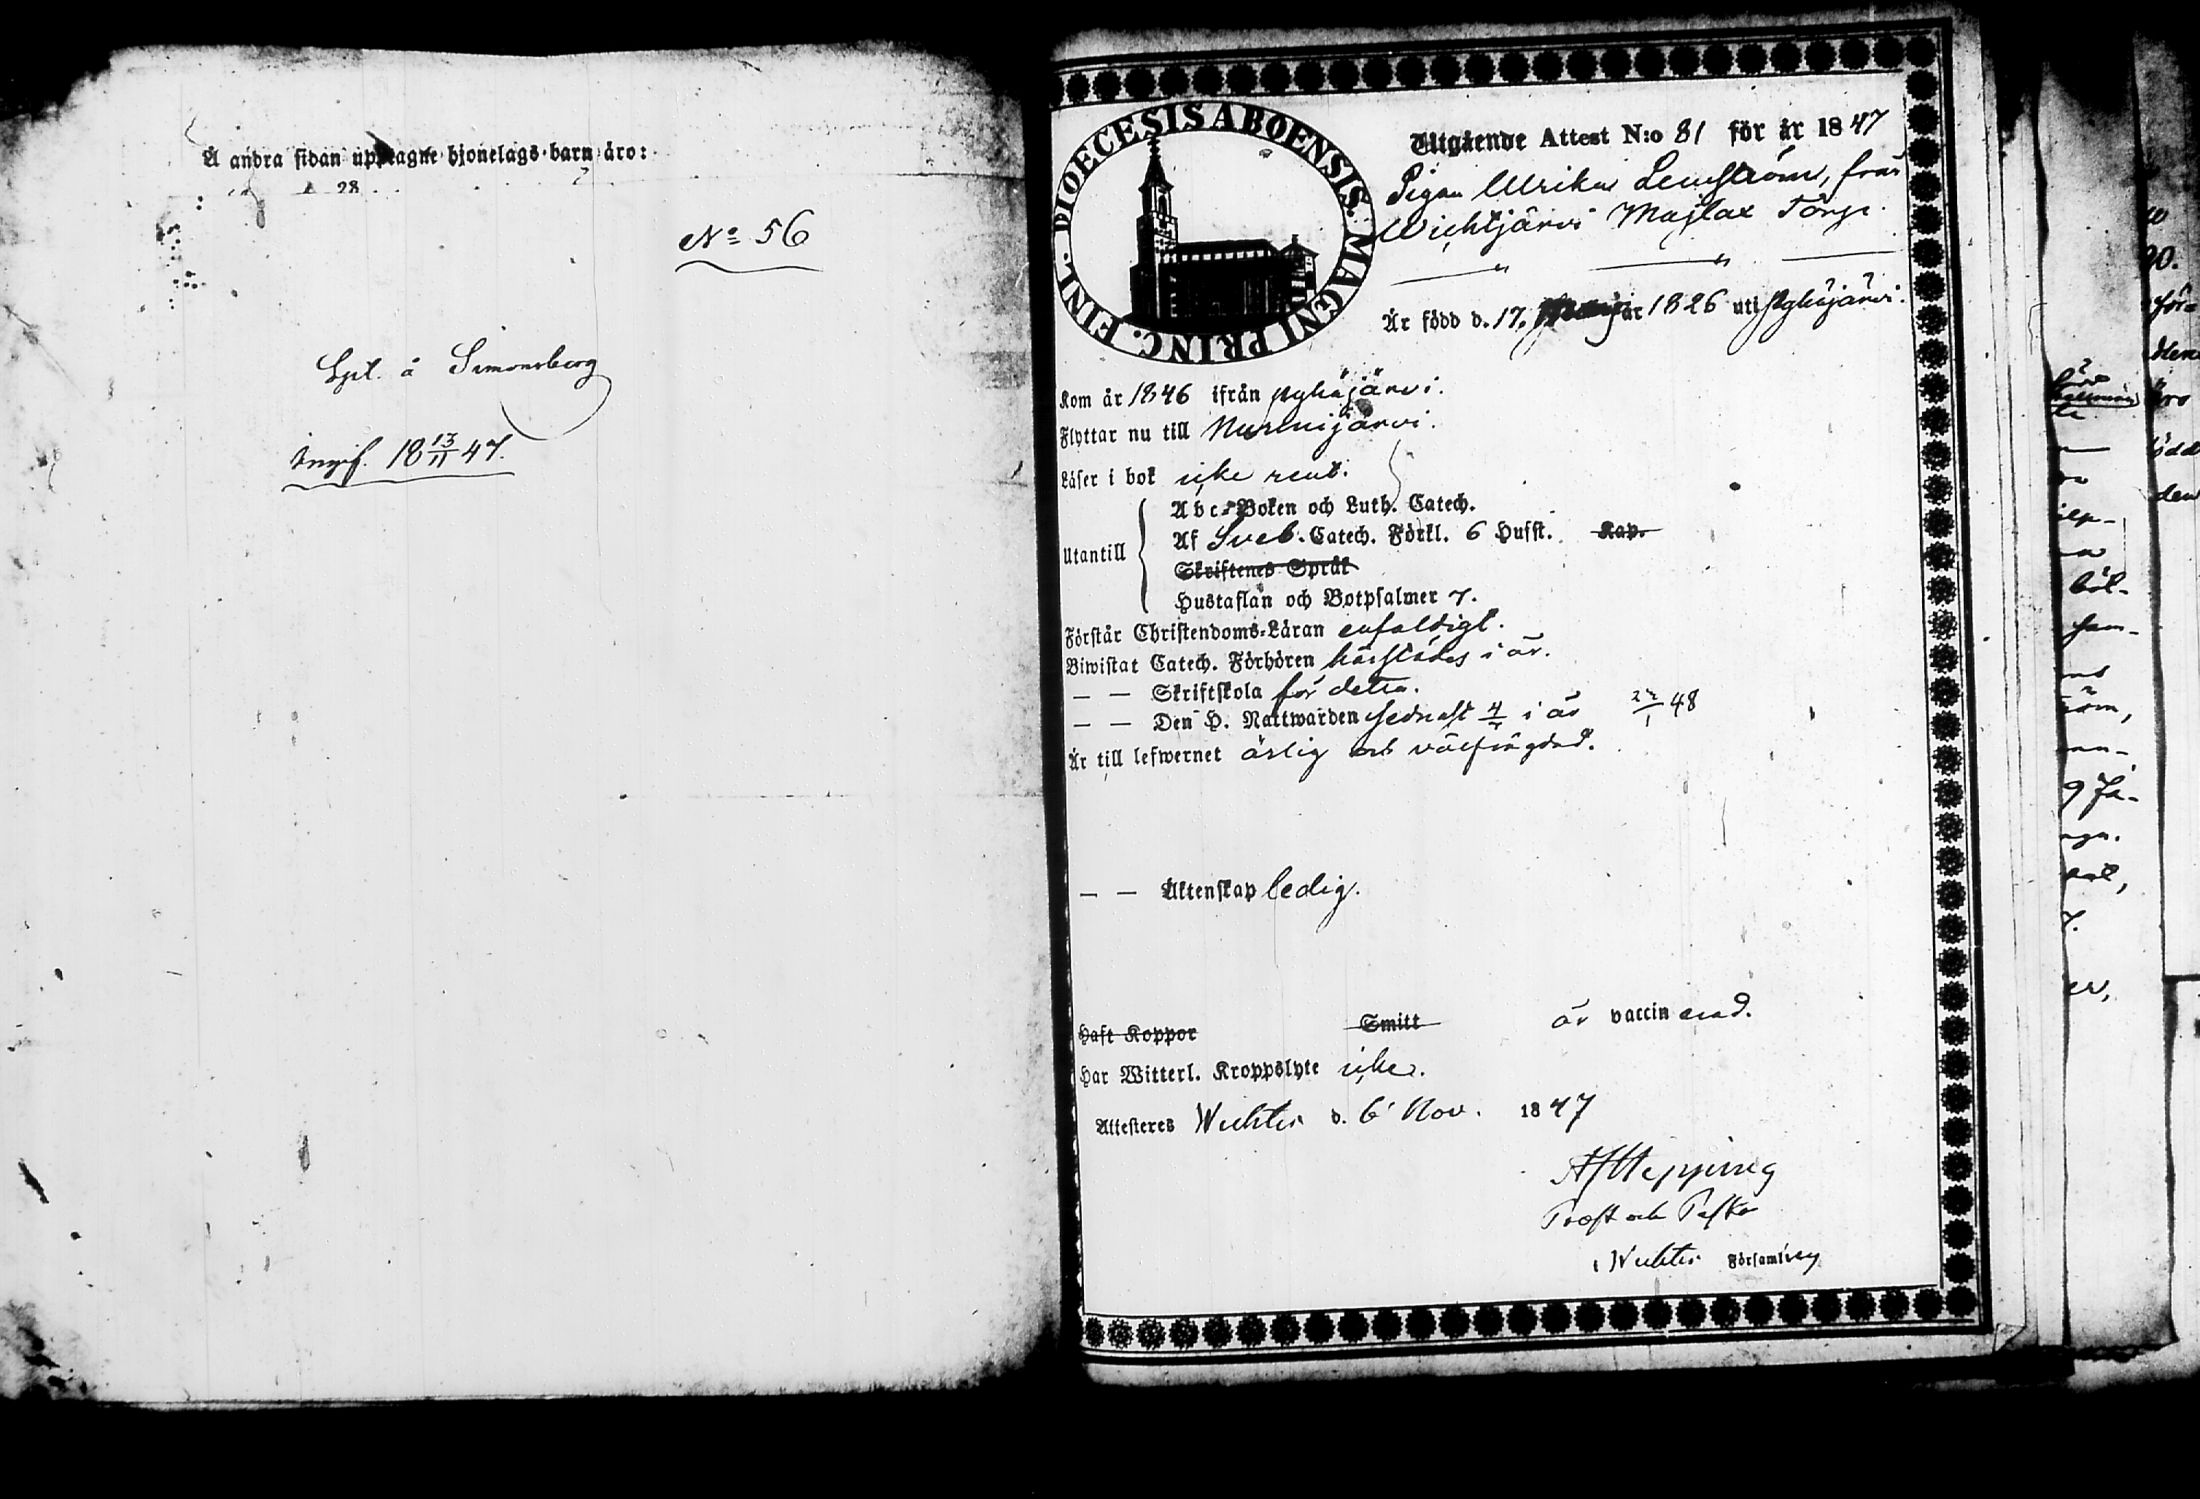 Å andra sidan upptagne hjonelags-barn äro:
28
No 56
å Simonsberg
Ingif. 18 13/11 47.
DIOECESIS ABOENSIS. MAGNI PRINC. FINL.
Utgående Attest N:o 81 för år 1847
Pigan Ulrika Lenström, från
Wichtjärvi Majlax Torp.
Är född d. 17. år 1826 uti Pyhäjärvi.
Kom år 1846 ifrån Pyhäjärvi.
Flyttar nu till Nurmijärvi.
Läser i bok icke rent.
Utantill
Abc-Boken och Luth. Catech.
Af Sveb. Catech. Förkl. 6 Hufst. Kap.
Skriftenes Språk
Hustaflan och Botpsalmer 7.
Förstår Christendoms-Läran enfaldigt.
Biwistat Catech. Förhören härstädes i år.
— — Skriftskola för detta.
— — Den H. Nattwarden sednast i år 48
Är till lefwernet ärlig och välfrägdad.
— — Äktenskap ledig.
Haft Koppor Smitt är vaccinerad.
Har Witterl. Kroppslyte icke.
Attesteres Wichtis d. 6 Nov. 1847
Hipping
Prost och Pastor
i Wichtis Församling